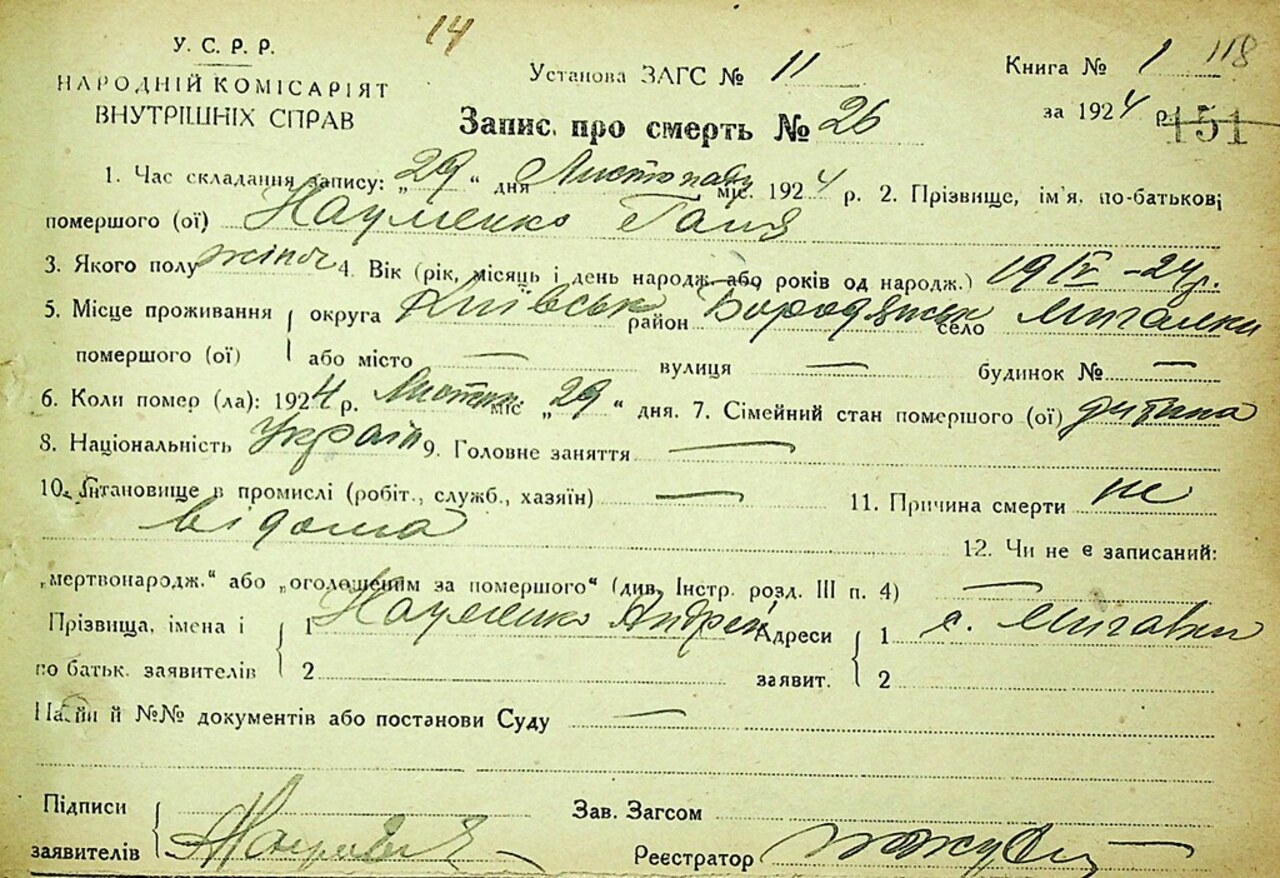 14
У. С. Р. Р.
НАРОДНІЙ КОМІСАРІЯТ
ВНУТРІШНІХ СПРАВ
Установа ЗАГС № 11
Книга № 1 118
за 1924 р. 151
Запис про смерть № 26
1. Час складання запису: „29“ дня Листопаду міс. 1924 р. 2. Прізвище, ім'я, по-батькові
помершого (ої) Науменко Ганя
3. Якого полу жіноч 4. Вік (рік, місяць і день народж. або років од народж.) 19 IV - 24 р.
5. Місце проживання округа Київськ район Бородянськ село Мигалки
помершого (ої) або місто — вулиця — будинок № —
6. Коли помер (ла): 1924 р. Листоп. міс „29“ дня. 7. Сімейний стан помершого (ої) дитина
8. Національність Україн 9. Головне заняття —
10. Становище в промислі (робіт., служб., хазяїн) — 11. Причина смерти не
відома
12. Чи не є записаний:
„мертвонародж.“ або „оголошеним за помершого“ (див. Інстр. розд. III п. 4) —
Прізвища, імена і 1 Науменко Андрей Адреси 1 с. Мигалки
по батьк. заявителів 2 заявит. 2
Назви й №№ документів або постанови Суду —
Підписи Зав. Загсом
заявителів Реєстратор